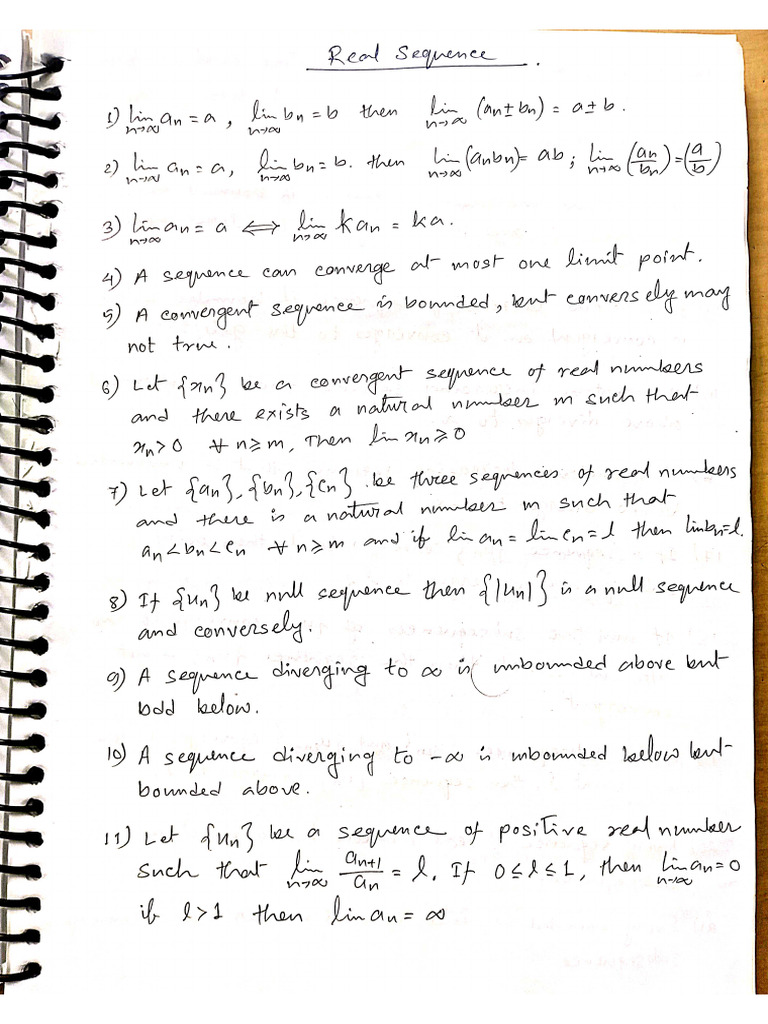 Real Sequence.
1) lim n→∞ an = a, lim n→∞ bn = b then lim n→∞ (an ± bn) = a ± b.
2) lim n→∞ an = a, lim n→∞ bn = b. then lim n→∞ (anbn) = ab; lim n→∞ (an/bn) = (a/b)
3) lim n→∞ an = a ⟺ lim n→∞ kan = ka.
4) A sequence can converge at most one limit point.
5) A convergent sequence is bounded, but conversely may
not true.
6) Let {xn} be a convergent sequence of real numbers
and there exists a natural number m such that
xn > 0 ∀ n ≥ m, Then lim xn ≥ 0
7) Let {an}, {bn}, {cn} be three sequences of real numbers
and there is a natural number m such that
an < bn < cn ∀ n ≥ m and if lim an = lim cn = l then lim bn = l.
8) If {un} be null sequence then {|un|} is a null sequence
and conversely.
9) A sequence diverging to ∞ is unbounded above but
bdd below.
10) A sequence diverging to -∞ is unbounded below but
bounded above.
11) Let {un} be a sequence of positive real number
such that lim n→∞ an+1/an = l. If 0 ≤ l ≤ 1, then lim n→∞ an = 0
if l > 1 then lim an = ∞